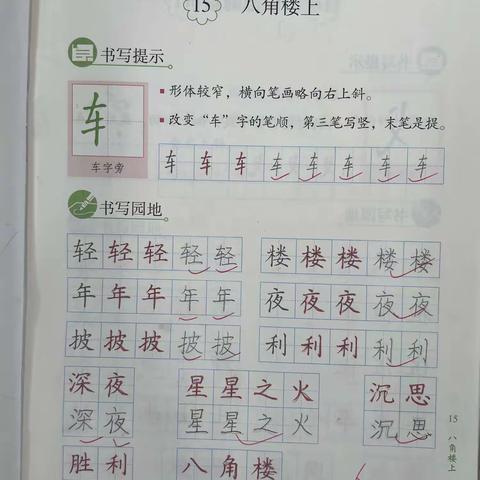 15 八角楼上
书写提示
形体较窄，横向笔画略向右上斜。
改变“车”字的笔顺，第三笔写竖，末笔是提。
车
车字旁
车 车 车 车 车 车 车 车
书写园地
轻 轻 轻 轻 轻 楼 楼 楼 楼 楼
年 年 年 年 年 夜 夜 夜 夜 夜
披 披 披 披 披 利 利 利 利 利
深 夜 星 星 之 火 沉 思
深 夜 星 星 之 火 沉 思
胜 利 八 角 楼
15 八角楼上